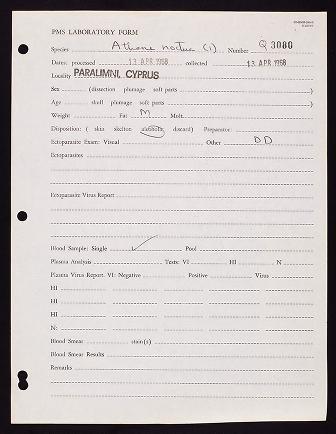 PMS LABORATORY FORM
Species Athene noctua (1) Number Q 3080
Dates: processed 13 APR 1968 collected 13 APR 1968
Locality PARALIMNI, CYPRUS
Sex (dissection plumage soft parts )
Age skull plumage soft parts )
Weight Fat M Molt
Disposition: ( skin skelton alcoholic discard) Preparator
Ectoparasite Exam: Visual Other DD
Ectoparasites
Ectoparasite Virus Report
Blood Sample: Single ✓ Pool
Plasma Analysis Tests: VI HI N
Plasma Virus Report. VI: Negative Positive Virus
HI
HI
HI
N:
Blood Smear stain(s)
Blood Smear Results
Remarks